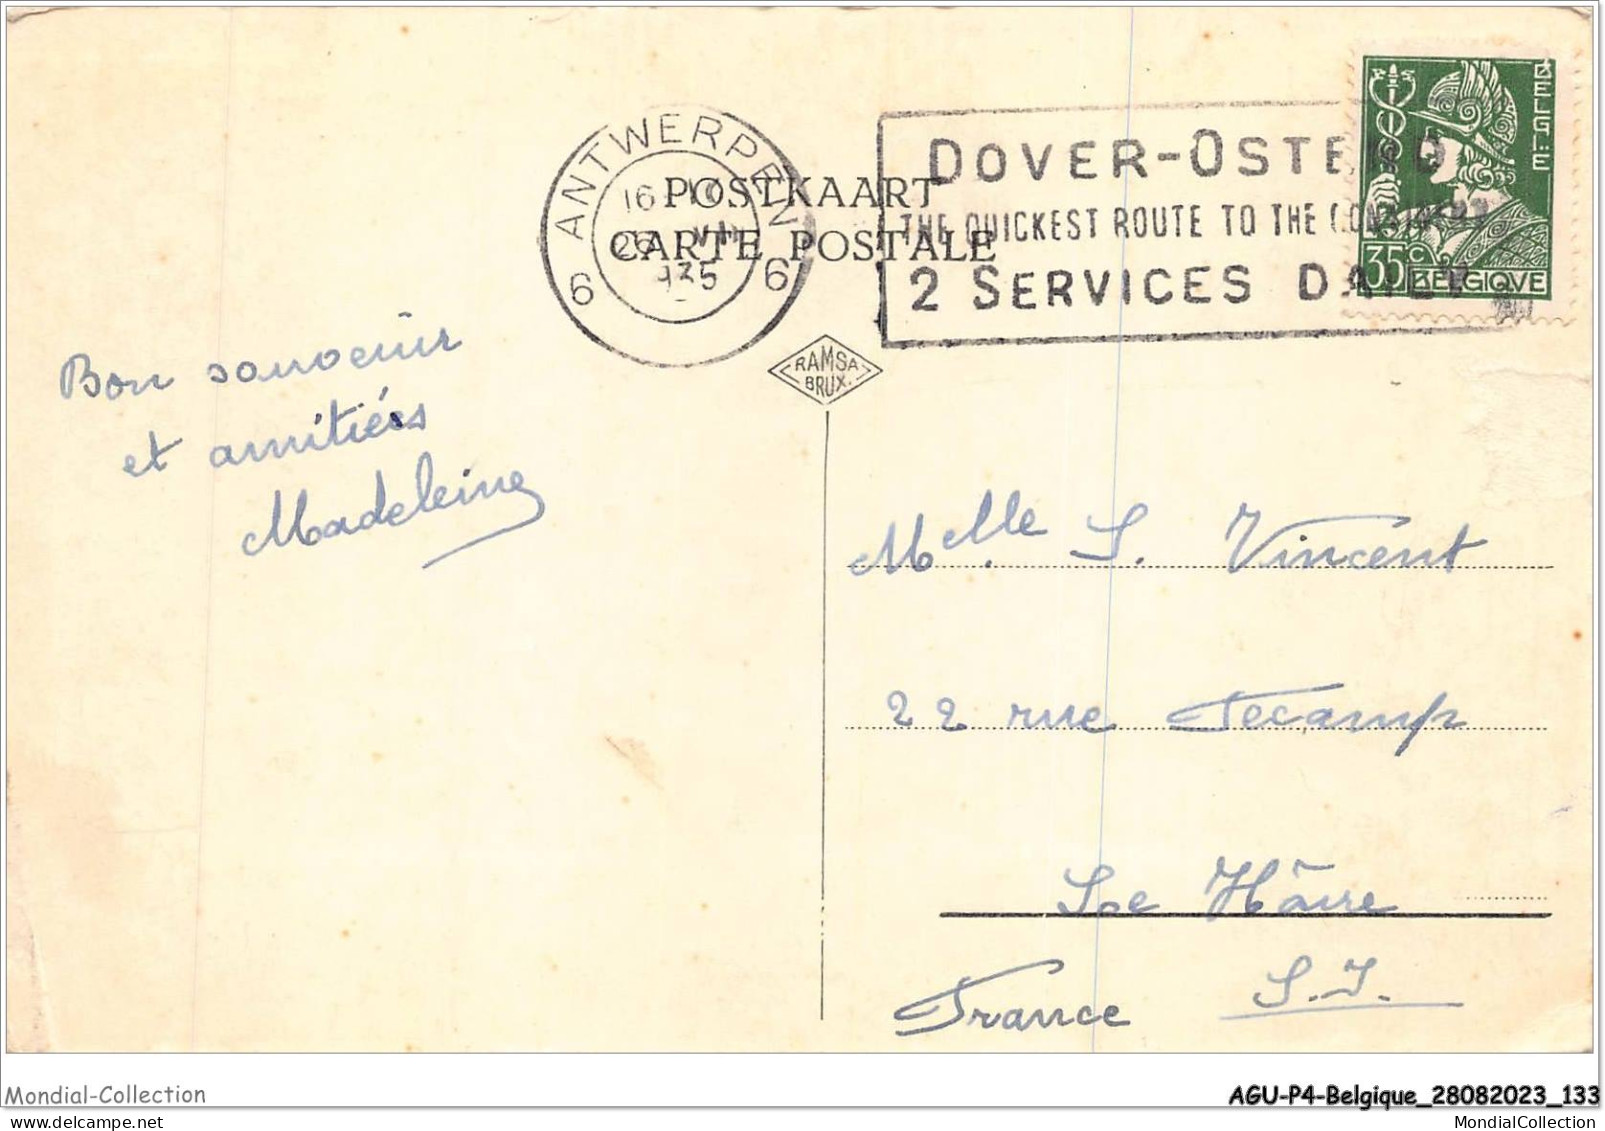 ANTWERPEN
6 6
16
26 VII
1935
DOVER-OSTEND
THE QUICKEST ROUTE TO THE CONTINENT
2 SERVICES DAILY
BELGIË
35c
BELGIQVE
POSTKAART
CARTE POSTALE
RAMSA
BRUX.
Bon souvenir
et amitiés
Madeleine
Melle. S. Vincent
22 rue Fécamp
Le Hâvre
S.I.
France
Mondial-Collection
AGU-P4-Belgique_28082023_133
MondialCollection